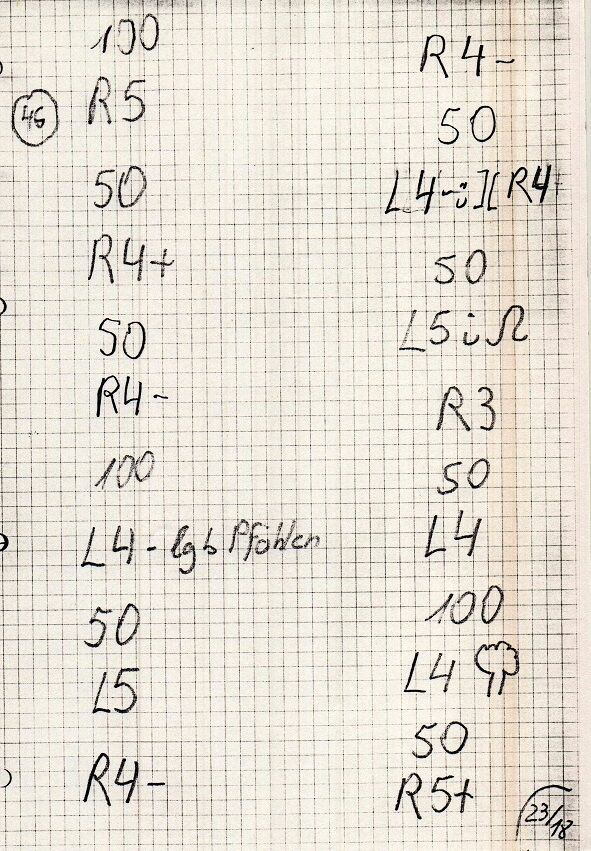 100
46
R5
50
R4+
50
R4-
100
L4- lgb Pföhlen
50
L5
R4-
R4-
50
L4-ü][ R4
50
L5 ü Ω
R3
50
L4
100
L4
50
R5+
23/18